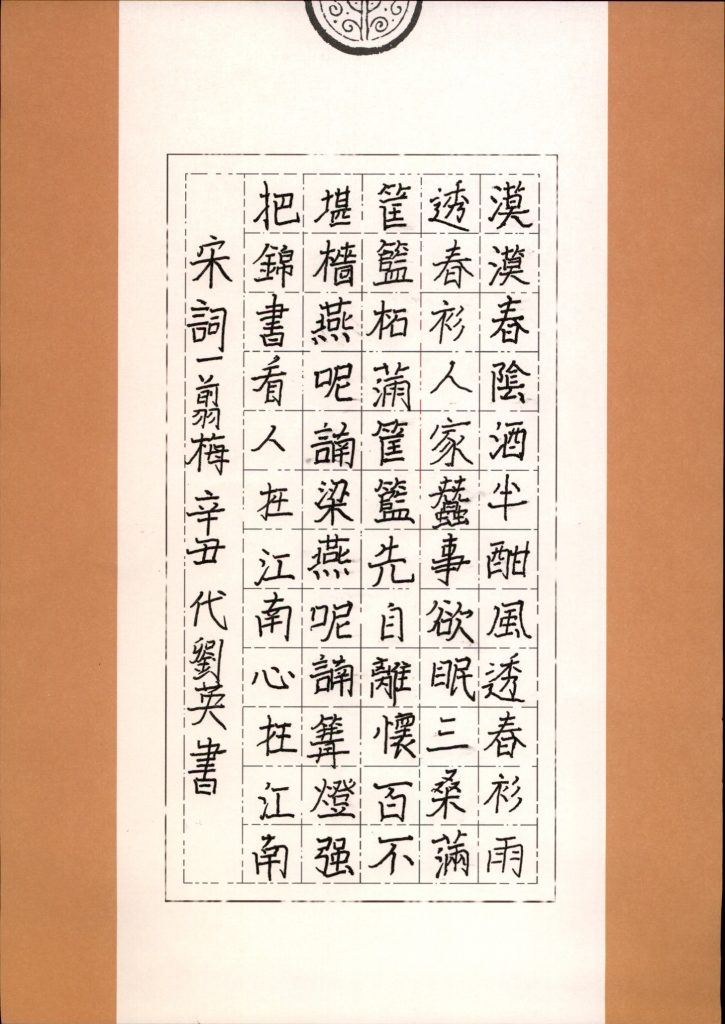 漠漠春陰酒半酣風透春衫雨
透春衫人家蠶事欲眠三桑滿
筐籃柘滿筐籃先自離懷百不
堪檣燕呢諵梁燕呢諵篝燈强
把錦書看人在江南心在江南
宋詞一剪梅 辛丑 代劉英書